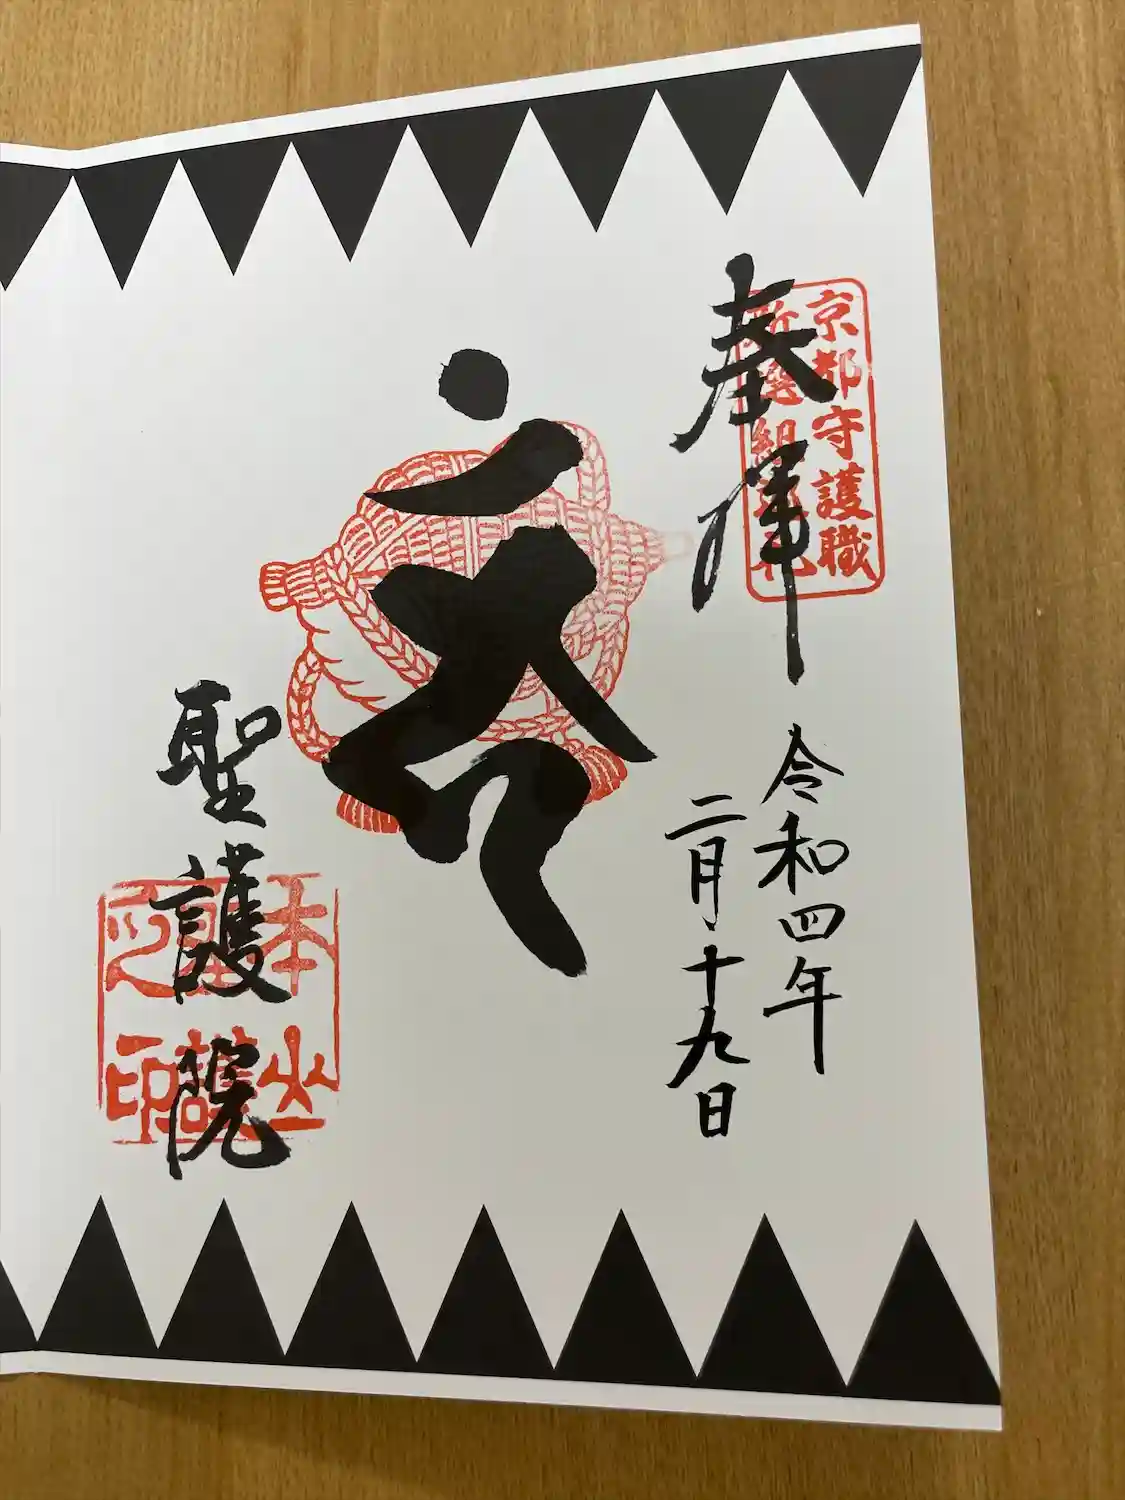 奉拝
京都守護職
新選組
令和四年
二月十九日
聖護院
本山
聖護
之印